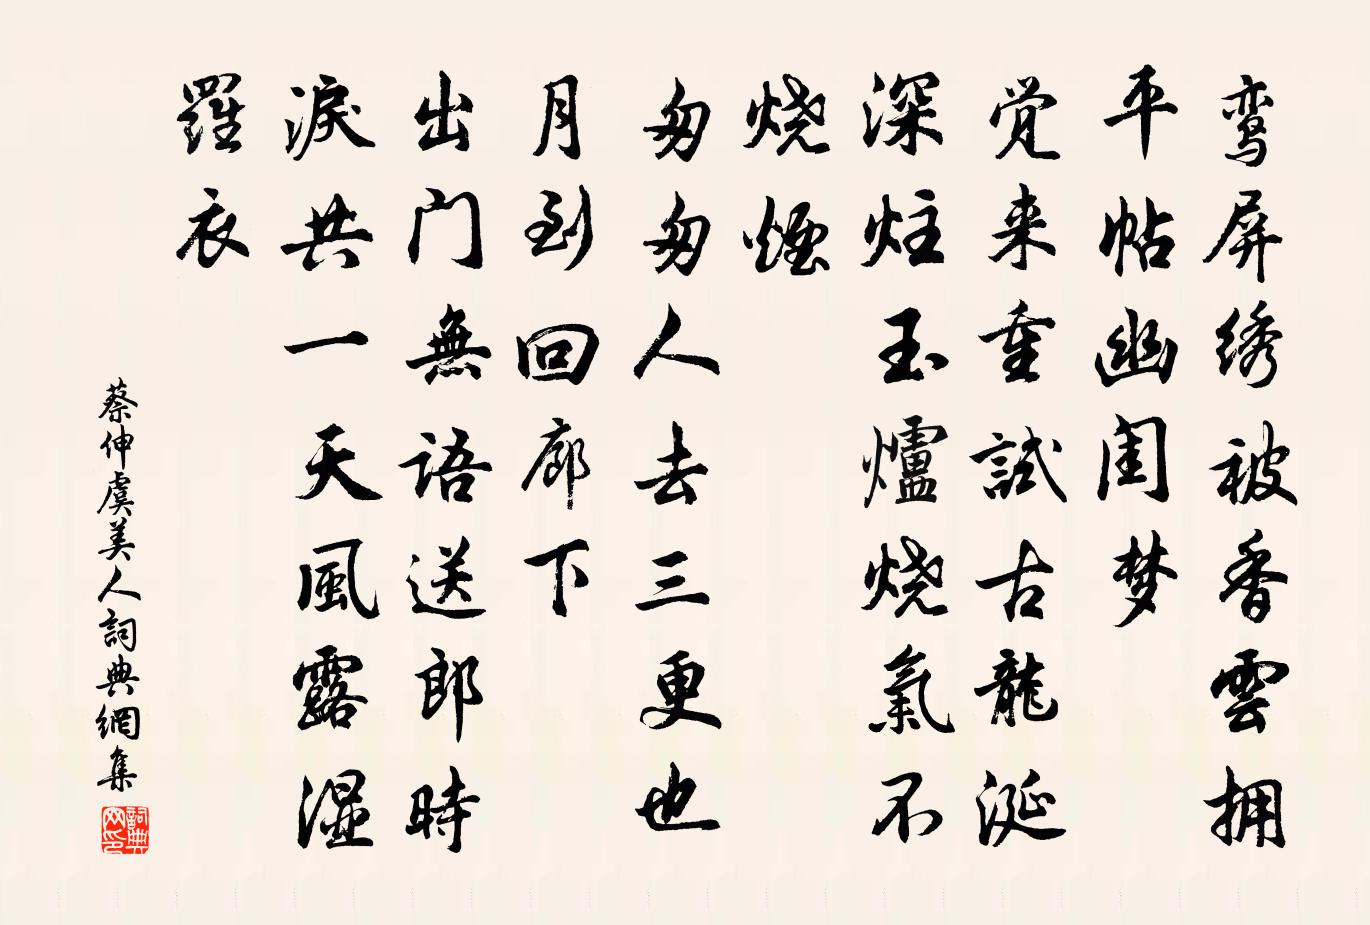 鸾屏绣被香雲拥
平帖幽闺梦
觉来重試古龍涎
深炷玉爐烧氣不
烧煙
匆匆人去三更也
月到回廊下
出门無語送郎時
淚共一天風露湿
羅衣
蔡伸虞美人詞典網集
詞典
网印